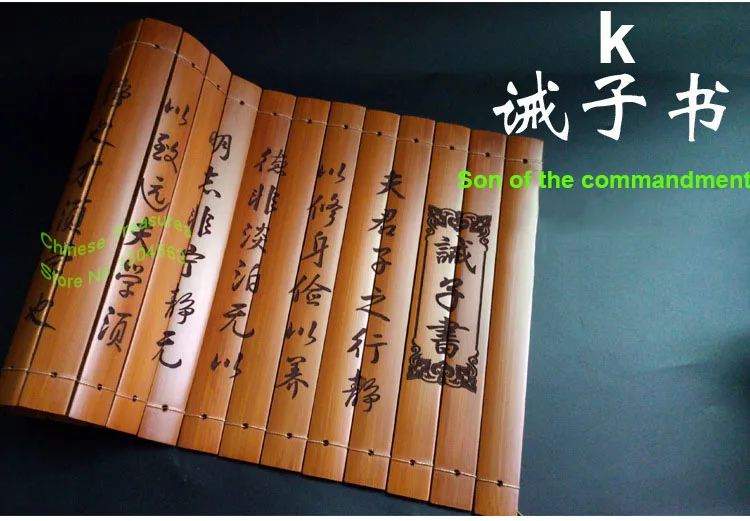 k
诫子书
Son of the commandment
誡子書
夫君子之行静
以修身俭以养
德非淡泊无以
明志非宁静无
以致远夫学须
静也才须学也
Chinese treasures
Store